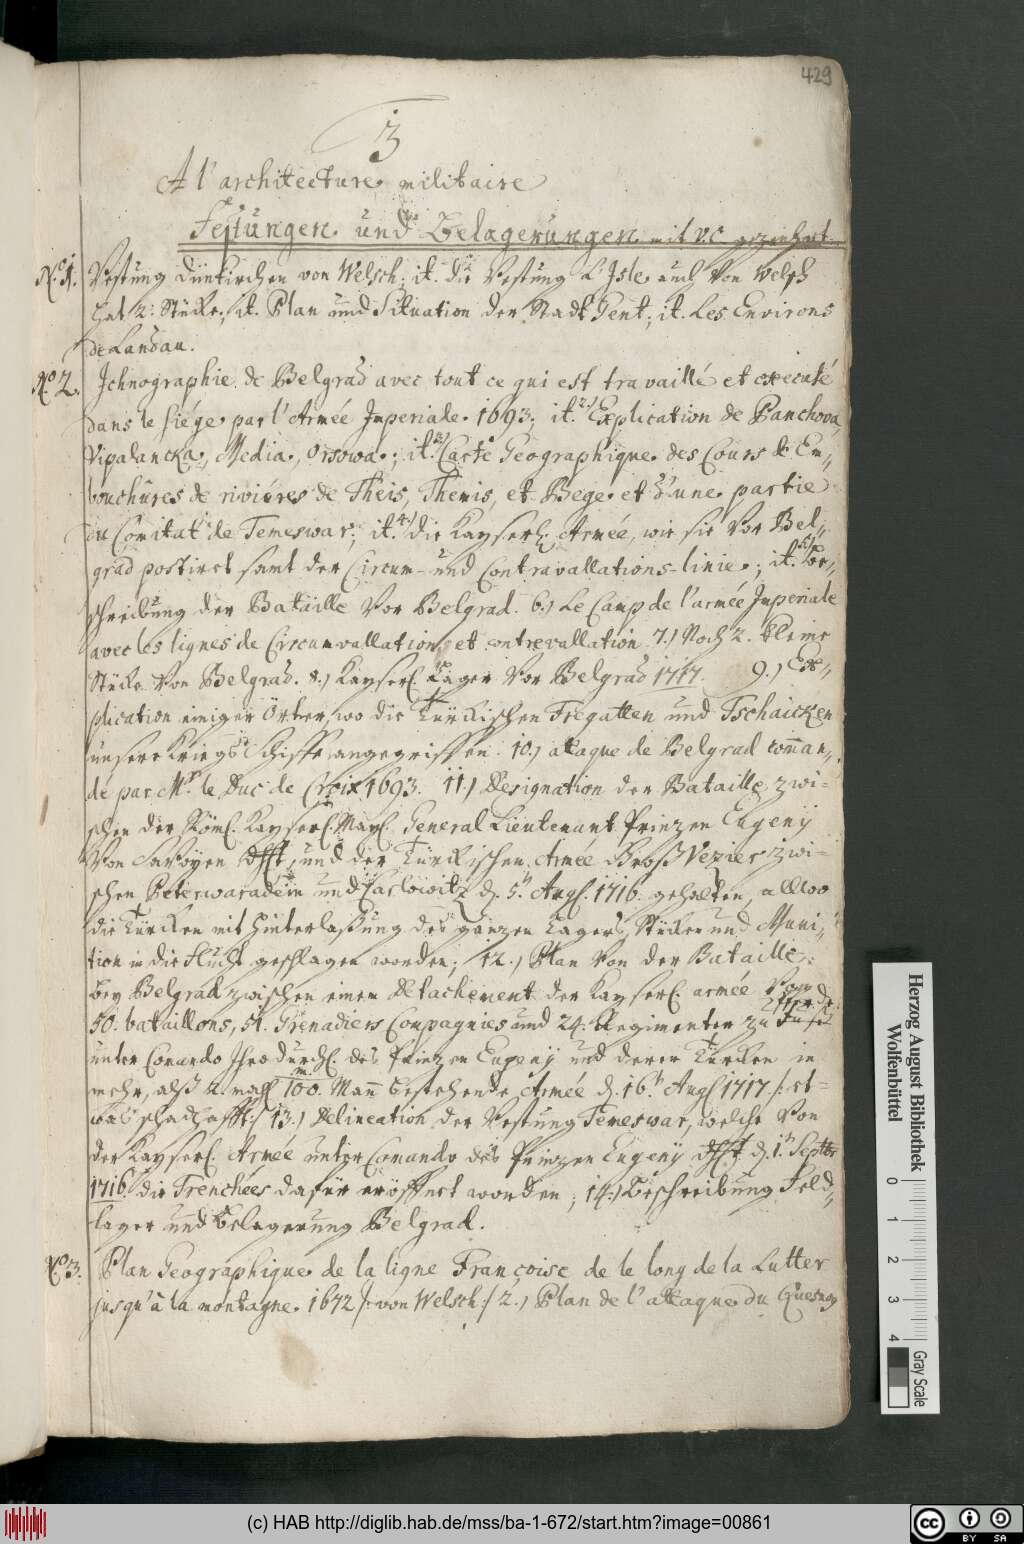 429
3
A l'architecture militaire
Festungen und Belagerungen mit V.C. gezeichnet.
No. 1. Vestung Dünkirchen von Welsch; it. die Vestung L'Isle auch von Welsch
hat 2. Stücke; it. Plan und Situation der Stadt Gent; it. Les Environs
de Landau.
No. 2. Ichnographie de Belgrad avec tout ce qui est travaillé et executé
dans le siége par l'Armée Imperiale 1693; it. 2.) Explication de Panchova,
Vipalancka, Media, Orsowa; it. 3.) Carte Geographique des Cours & Em-
bouchûres de riviéres de Theis, Themis, et Bege et d'une partie
du Comitat de Temeswar; it. 4.) die Kayserl. Armée, wie sie vor Bel-
grad postirct samt der Circum- und Contravallations-linie; it. 5.) Be-
schreibung der Bataille vor Belgrad. 6.) Le Camp de l'armée Imperiale
avec les lignes de Circumvallation et contrevallation. 7.) Noch 2. kleine
Stücke von Belgrad. 8.) Kayserl. Läger vor Belgrad 1717. 9.) Ex-
plication einiger Örter, wo die Türkischen Fregatten und Tschaicken
unsere Kriegs Schiffe angegriffen. 10.) attaque de Belgrad comman-
dé par Mr. le Duc de Croix 1693. 11.) Designation der Bataille, zwi-
schen der Röml. Kayserl. Mayl. General Lieutenant Prinzen Eugenij
von Savoyen und der Türkischen Armée Groß Vezier zwi-
schen Peterwaradein und Carlowitz d. 5n Augl. 1716 gehalten, allwo
die Türken mit hinterlaßung des ganzen Lagers, Stüken und Muni-
tion in die Flucht geschlagen worden; 12.) Plan von der Bataille
bey Belgrad zwischen einem Detachement der Kayserl. armée von
50. bataillons, 51. Grenadiers Compagnies und 24. Regimenter zu Pferde
unter Comando Ihro Durchl. des Prinzen Eugenij und derer Türken in
mehr, alß 2. mahl 100m. Mann bestehende Armée d. 16n Augl 1717 /: et-
was schadhafft :/ 13.) Delineation der Vestung Temeswar, welche von
der Kayserl. Armée unter Comando des Prinzen Eugenij d. 1n Septbr
1716. die Trenchées dafür eröffnet worden; 14.) Beschreibung Feld-
lager und belagerung Belgrad.
No. 3. Plan Geographique de la ligne Françoise de le long de la Lutter
jusqu'à la montagne 1672 /: von Welsch :/ 2.) Plan de l'attaque du Quesnoy
Herzog August Bibliothek
Wolfenbüttel
0 1 2 3 4
Gray Scale
(c) HAB http://diglib.hab.de/mss/ba-1-672/start.htm?image=00861
cc BY SA